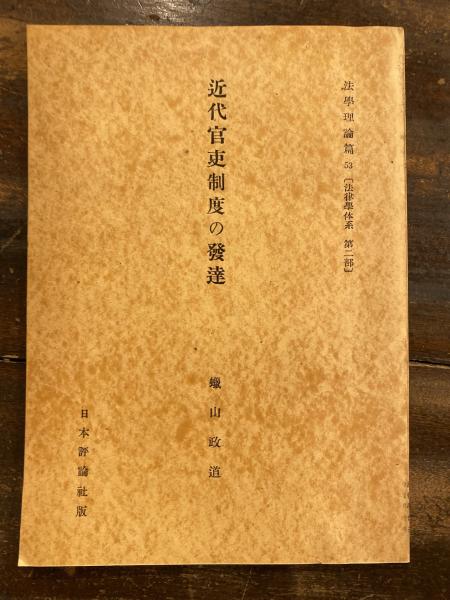 法學理論篇 53 〔法律學体系 第二部〕
近代官吏制度の發達
蠟山政道
日本評論社版